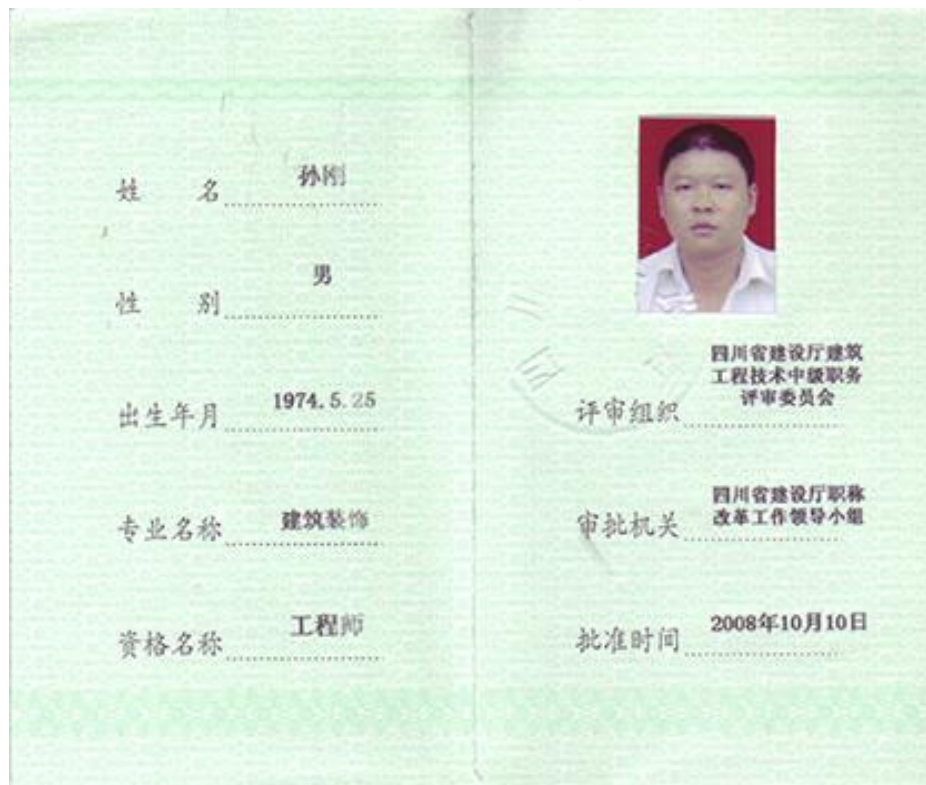 姓 名 孙刚
性 别 男
出生年月 1974.5.25
专业名称 建筑装饰
资格名称 工程师
四川省建设厅建筑
工程技术中级职务
评审组织 评审委员会
四川省建设厅职称
审批机关 改革工作领导小组
批准时间 2008年10月10日